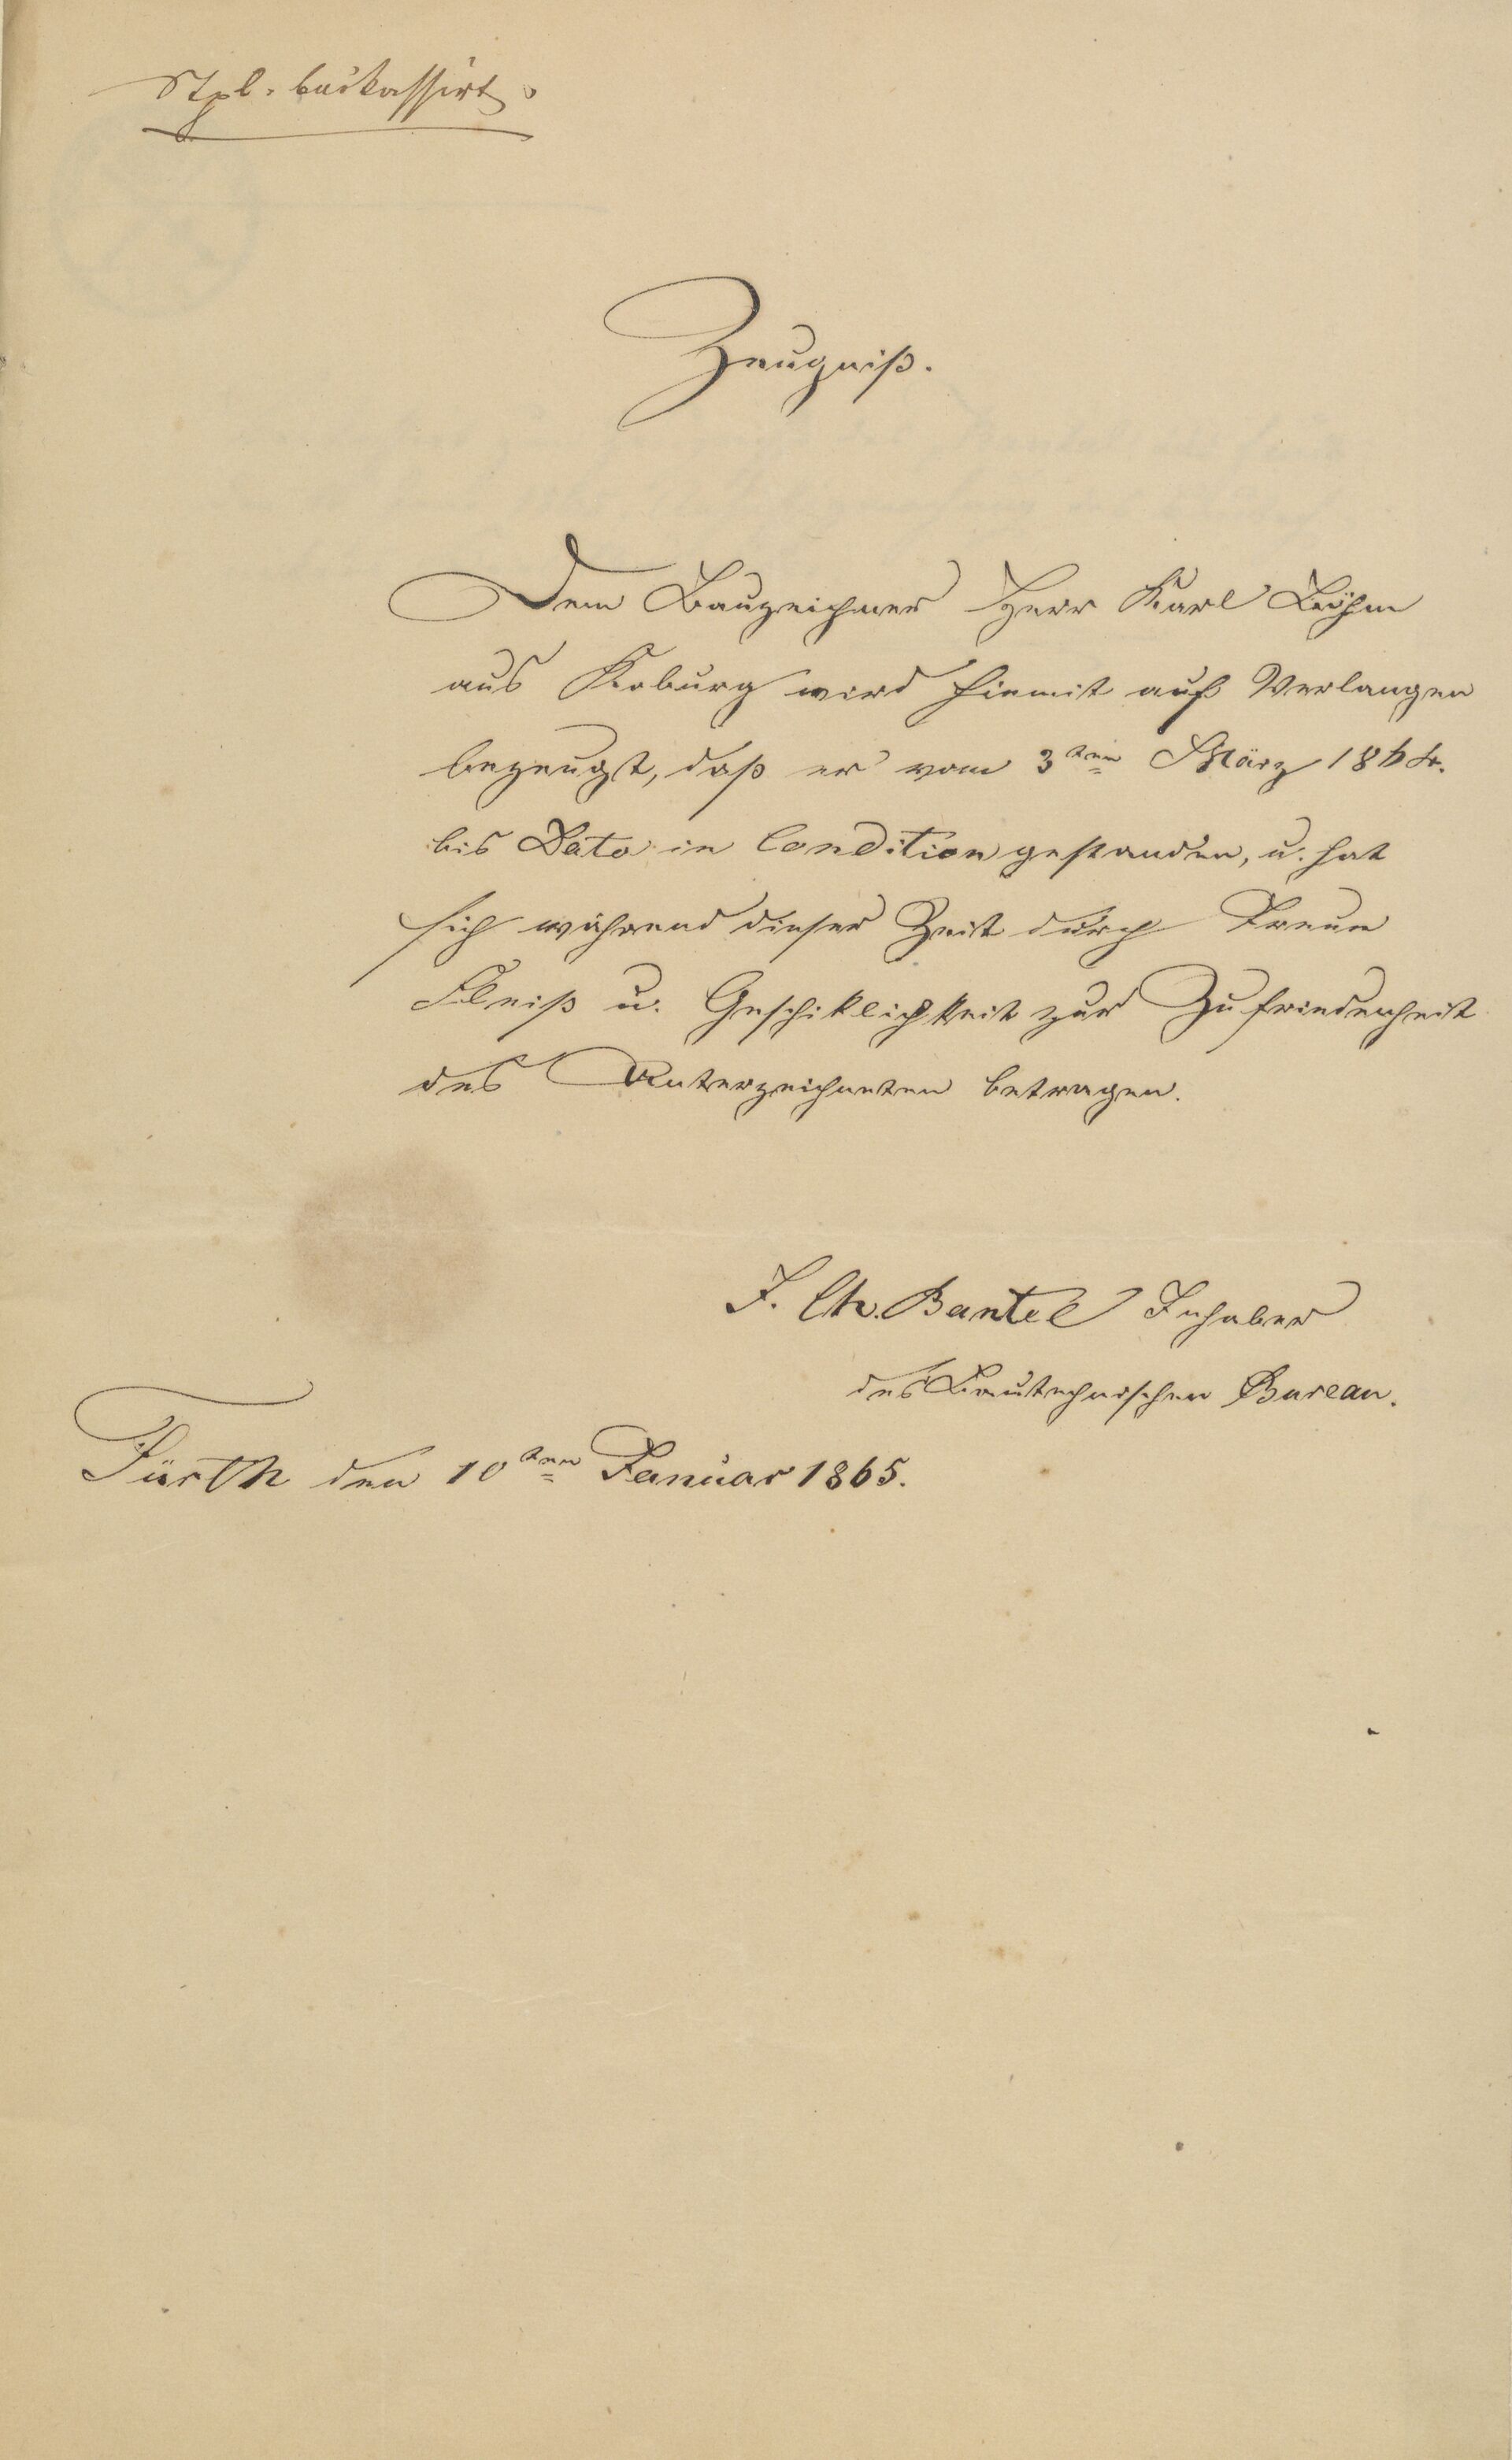 Stpl.
Zeugniß.
Dem Bauzeichner Herr Karl Böhm
aus Koburg wird hiemit auf Verlangen
bezeugt, daß er vom 3ten März 1864.
bis Dato in Condition gestanden, u. hat
sich während dieser Zeit durch Treue
Fleiß u. Geschiklichkeit zur Zufriedenheit
des Unterzeichneten betragen.
J. Ch. Bantel Inhaber
des Bautechnischen Bureau.
Fürth den 10ten Januar 1865.